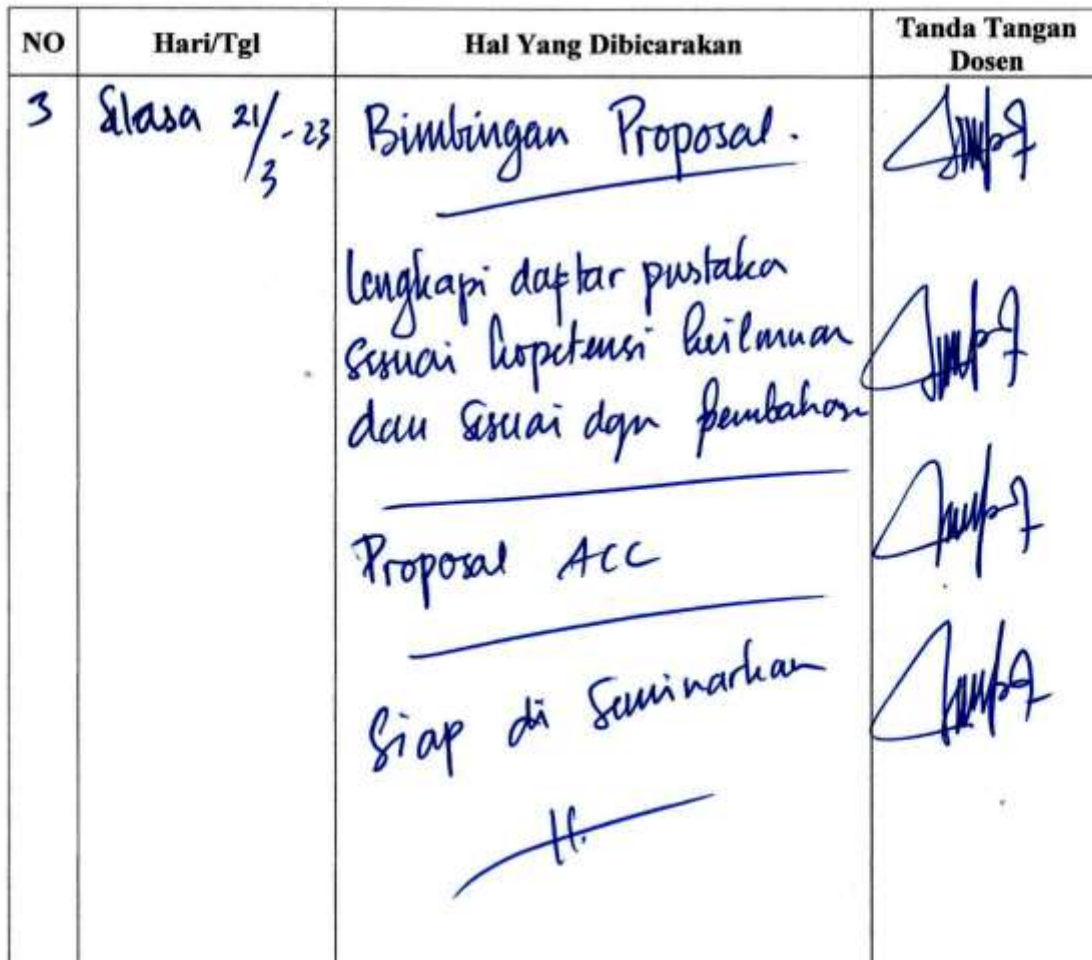 NO Hari/Tgl Hal Yang Dibicarakan Tanda Tangan Dosen
3 Selasa 21/3-23 Bimbingan Proposal.
lengkapi daftar pustaka
sesuai kopetensi keilmuan
dan sesuai dgn pembahasan
Proposal ACC
Siap di Seminarkan